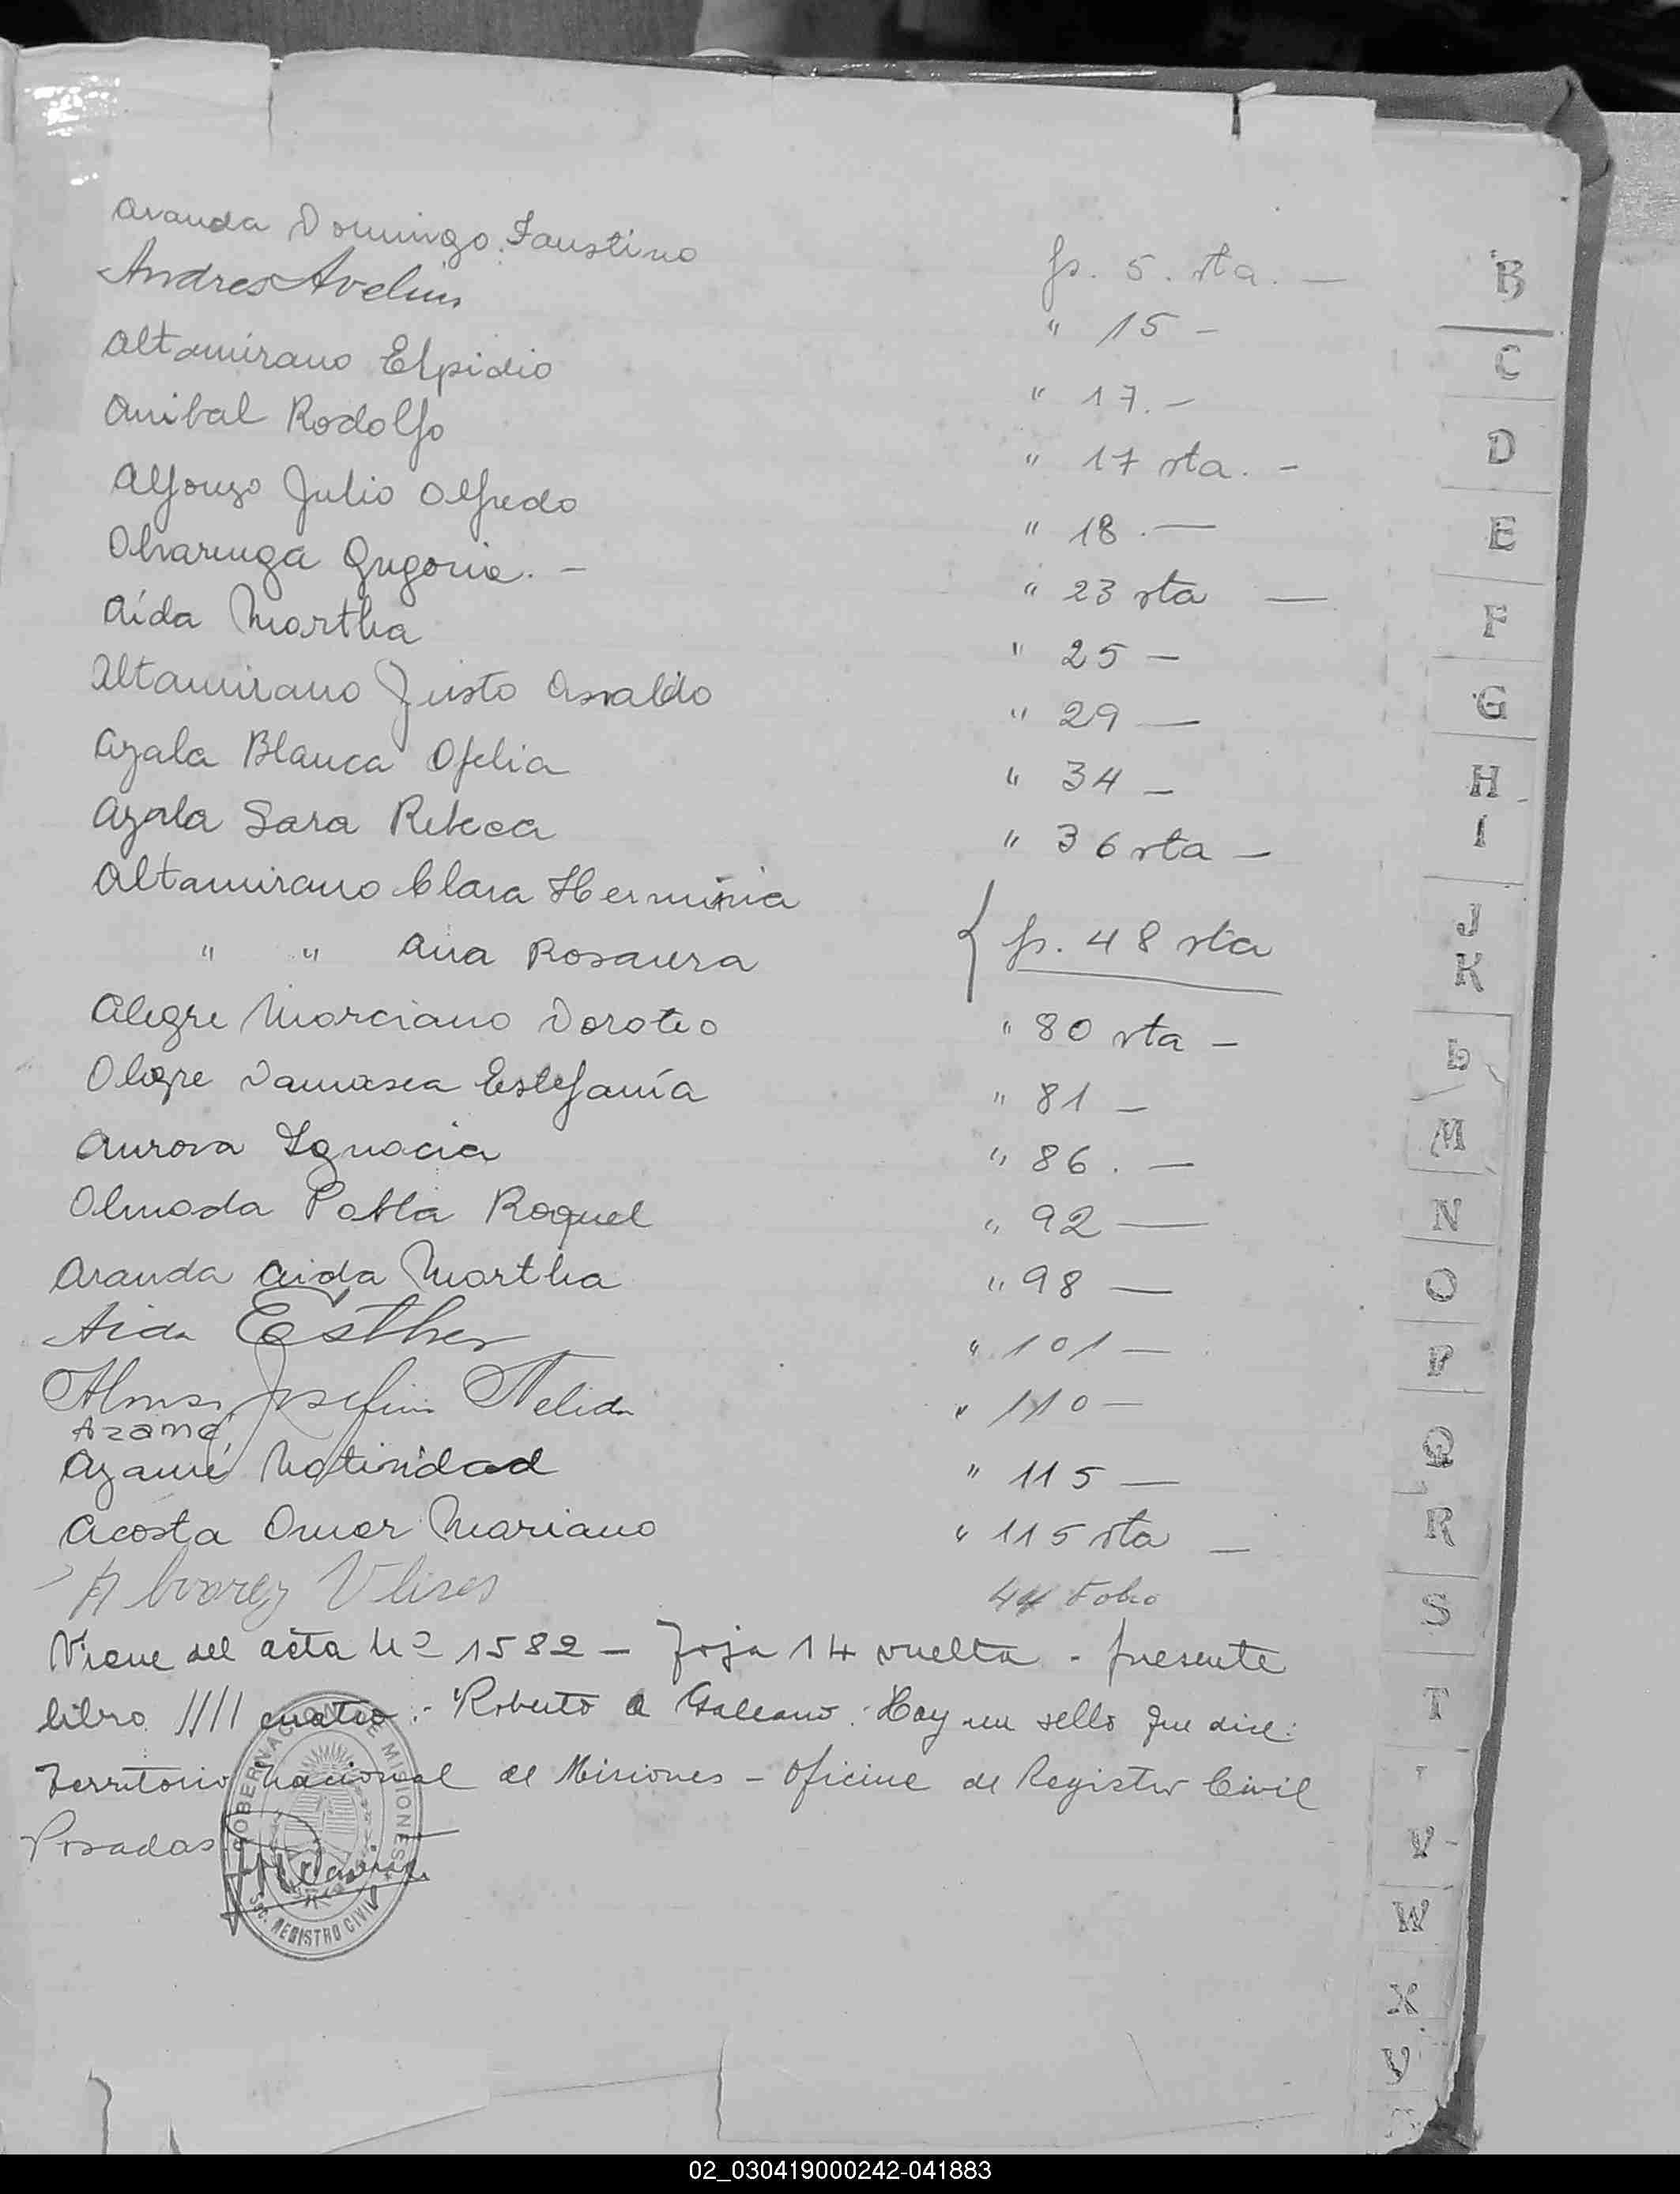 Aranda Domingo Faustino fs. 5. vta. —
Andres Avelin " 15 —
Altamirano Elpidio " 17. —
Anibal Rodolfo " 17 vta. —
Alfonzo Julio Alfredo " 18. —
Alvarenga Gregoria. — " 23 vta —
Aída Martha " 25 —
Altamirano Justo Osvaldo " 29 —
Ayala Blanca Ofelia " 34 —
Ayala Sara Rebeca " 36 vta —
Altamirano Clara Herminia
" " Ana Rosaura { fs. 48 vta
Alegre Marciano Doroteo " 80 vta —
Alegre Damasea Estefanía " 81 —
Aurora Ignacia " 86. —
Almada Pabla Raquel " 92 —
Aranda Aida Martha " 98 —
Aida Esther " 101 —
Alonso Josefina Nelida " 110 —
Azame
Azamé Natividad " 115 —
Acosta Omar Mariano " 115 vta —
Alvarez Ulises 44 Folio
Viene del acta Nº 1582 — Foja 14 vuelta - presente
libro //// cuatro .- Roberto A Galeano. Hay un sello que dice:
Territorio Nacional de Misiones — Oficina de Registro Civil
Posadas. —
GOBERNACION DE MISIONES
SEC. REGISTRO CIVIL
B
C
D
E
F
G
H
I
J
K
L
M
N
O
P
Q
R
S
T
V
W
X
Y
02_030419000242-041883